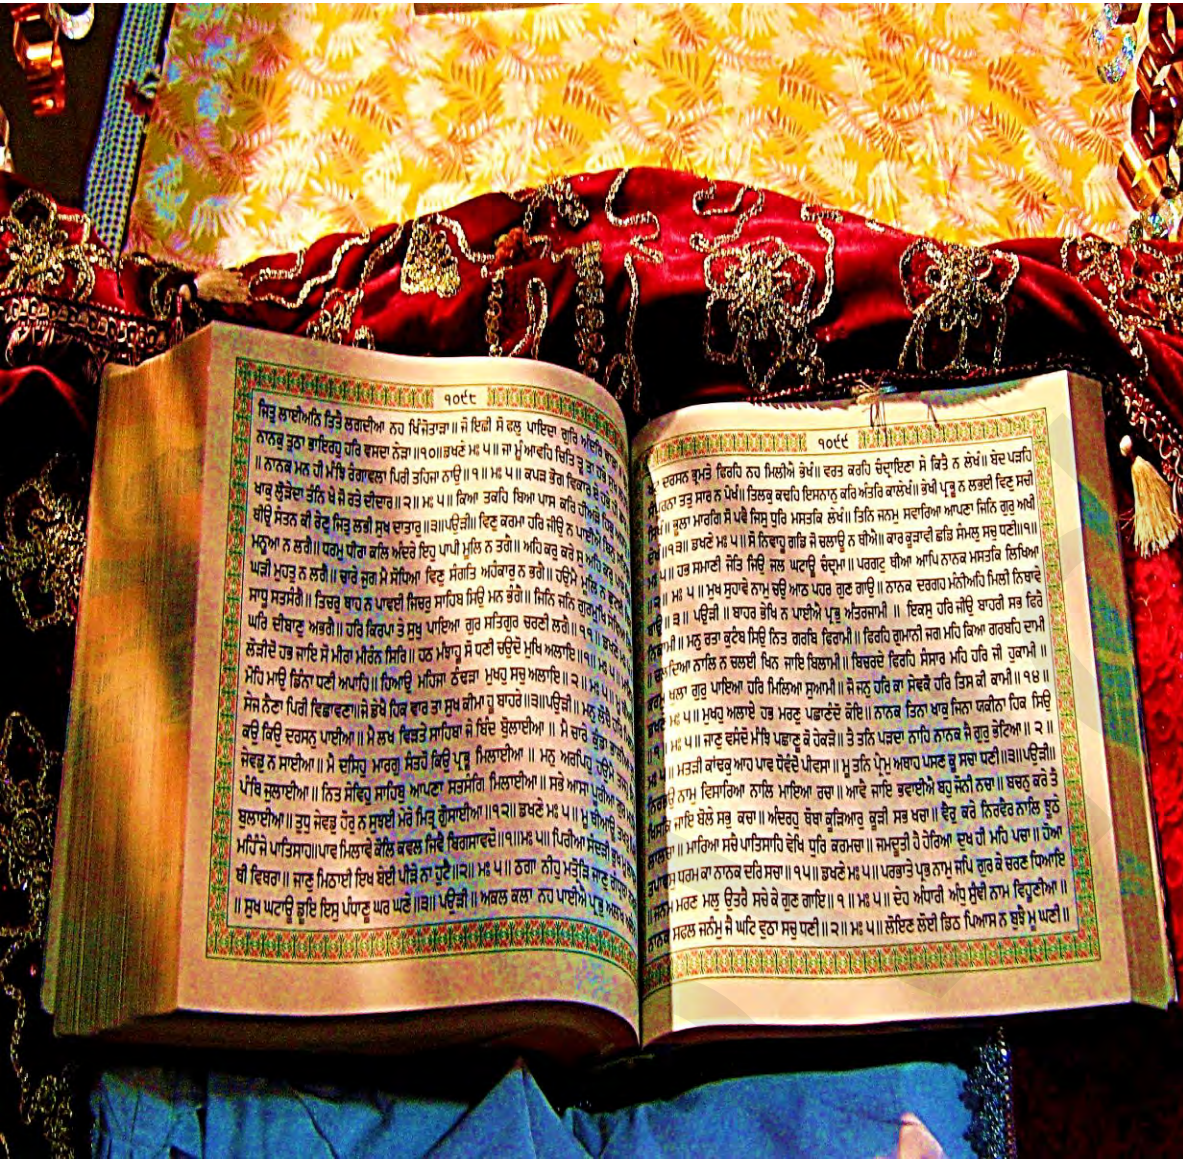 ੧੦੯੮
ਜਿਤੁ ਲਾਈਅਨਿ ਤਿਤੈ ਲਗਦੀਆ ਨਹ ਖਿੰਜੋਤਾੜਾ॥ ਜੋ ਇਛੀ ਸੋ ਫਲੁ ਪਾਇਦਾ ਗੁਰਿ ਅੰਦਰਿ
ਨਾਨਕੁ ਤੁਠਾ ਭਾਇਰਹੁ ਹਰਿ ਵਸਦਾ ਨੇੜਾ॥੧੦॥ਡਖਣੇ ਮਃ ੫॥ ਜਾ ਮੂੰ ਆਵਹਿ ਚਿਤਿ ਤੂ ਤਾ ਹਭੇ
॥ ਨਾਨਕ ਮਨ ਹੀ ਮੰਝਿ ਰੰਗਾਵਲਾ ਪਿਰੀ ਤਹਿਜਾ ਨਾਉ॥੧॥ ਮਃ ੫॥ ਕਪੜ ਭੋਗ ਵਿਕਾਰ ਏ ਹਭੇ
ਖਾਕੁ ਲੋੁੜੇਦਾ ਤੰਨਿ ਖੇ ਜੋ ਰਤੇ ਦੀਦਾਰ॥੨॥ ਮਃ ੫॥ ਕਿਆ ਤਕਹਿ ਬਿਆ ਪਾਸ ਕਰਿ ਹੀਅੜੇ ਹਿਕੁ
ਥੀਉ ਸੰਤਨ ਕੀ ਰੇਣੁ ਜਿਤੁ ਲਭੀ ਸੁਖ ਦਾਤਾਰੁ॥੩॥ਪਉੜੀ॥ ਵਿਣੁ ਕਰਮਾ ਹਰਿ ਜੀਉ ਨ ਪਾਈਐ ਬਿਨੁ
ਮਨੂਆ ਨ ਲਗੈ॥ ਧਰਮੁ ਧੀਰਾ ਕਲਿ ਅੰਦਰੇ ਇਹੁ ਪਾਪੀ ਮੂਲਿ ਨ ਤਗੈ॥ ਅਹਿ ਕਰੁ ਕਰੇ ਸੁ ਅਹਿ ਕਰੁ
ਘੜੀ ਮੁਹਤੁ ਨ ਲਗੈ॥ ਚਾਰੇ ਜੁਗ ਮੈ ਸੋਧਿਆ ਵਿਣੁ ਸੰਗਤਿ ਅਹੰਕਾਰੁ ਨ ਭਗੈ॥ ਹਉਮੈ ਮੂਲਿ ਨ ਛੁਟਈ
ਸਾਧੂ ਸਤਸੰਗੈ॥ ਤਿਚਰੁ ਥਾਹ ਨ ਪਾਵਈ ਜਿਚਰੁ ਸਾਹਿਬ ਸਿਉ ਮਨ ਭੰਗੈ॥ ਜਿਨਿ ਜਨਿ ਗੁਰਮੁਖਿ ਸੇਵਿਆ
ਘਰਿ ਦੀਬਾਣੁ ਅਭਗੈ॥ ਹਰਿ ਕਿਰਪਾ ਤੇ ਸੁਖੁ ਪਾਇਆ ਗੁਰ ਸਤਿਗੁਰ ਚਰਣੀ ਲਗੈ॥੧੧॥ ਡਖਣੇ
ਲੋੜੀਦੋ ਹਭ ਜਾਇ ਸੋ ਮੀਰਾ ਮੀਰੰਨ ਸਿਰਿ॥ ਹਠ ਮੰਝਾਹੂ ਸੋ ਧਣੀ ਚਉਦੋ ਮੁਖਿ ਅਲਾਇ॥੧॥ ਮਃ ੫॥
ਮੋਹਿ ਮਾਉ ਡਿੰਨਾ ਧਣੀ ਅਪਾਹਿ॥ ਹਿਆਉ ਮਹਿਜਾ ਠੰਢੜਾ ਮੁਖਹੁ ਸਚੁ ਅਲਾਇ॥੨॥ ਮਃ ੫॥
ਸੇਜ ਨੈਣਾ ਪਿਰੀ ਵਿਛਾਵਣਾ॥ਜੇ ਡੇਖੈ ਹਿਕ ਵਾਰ ਤਾ ਸੁਖ ਕੀਮਾ ਹੂ ਬਾਹਰੇ॥੩॥ਪਉੜੀ॥ ਮਨੁ ਲੋਚੈ ਹਰਿ
ਕਉ ਕਿਉ ਦਰਸਨੁ ਪਾਈਆ॥ ਮੈ ਲਖ ਵਿੜਤੇ ਸਾਹਿਬਾ ਜੇ ਬਿੰਦ ਬੋੁਲਾਈਆ॥ ਮੈ ਚਾਰੇ ਕੁੰਡਾ ਭਾਲੀਆ
ਜੇਵਡੁ ਨ ਸਾਈਆ॥ ਮੈ ਦਸਿਹੁ ਮਾਰਗੁ ਸੰਤਹੋ ਕਿਉ ਪ੍ਰਭੂ ਮਿਲਾਈਆ॥ ਮਨੁ ਅਰਪਿਹੁ ਹਉਮੈ ਤਜਹੁ
ਪੰਥਿ ਜੁਲਾਈਆ॥ ਨਿਤ ਸੇਵਿਹੁ ਸਾਹਿਬੁ ਆਪਣਾ ਸਤਸੰਗਿ ਮਿਲਾਈਆ॥ ਸਭੇ ਆਸਾ ਪੂਰੀਆ ਗੁਰ
ਬੁਲਾਈਆ॥ ਤੁਧੁ ਜੇਵਡੁ ਹੋਰੁ ਨ ਸੁਝਈ ਮੇਰੇ ਮਿਤ੍ਰ ਗੋੁਸਾਈਆ॥੧੨॥ ਡਖਣੇ ਮਃ ੫॥ ਮੂ ਥੀਆਊ ਤਖਤੁ
ਮਹਿੰਜੇ ਪਾਤਿਸਾਹ॥ਪਾਵ ਮਿਲਾਵੇ ਕੋਲਿ ਕਵਲ ਜਿਵੈ ਬਿਗਸਾਵਦੋ॥੧॥ਮਃ ੫॥ ਪਿਰੀਆ ਸੰਦੜੀ ਭੁਖ
ਥੀ ਵਿਥਰਾ॥ ਜਾਣੁ ਮਿਠਾਈ ਇਖ ਬੇਈ ਪੀੜੇ ਨਾ ਹੁਟੈ॥੨॥ ਮਃ ੫॥ ਠਗਾ ਨੀਹੁ ਮਤ੍ਰੋੜਿ ਜਾਣੁ ਗੰਧ੍ਰਬਾ
॥ ਸੁਖ ਘਟਾਊ ਡੂਇ ਇਸੁ ਪੰਧਾਣੂ ਘਰ ਘਣੇ॥੩॥ ਪਉੜੀ॥ ਅਕਲ ਕਲਾ ਨਹ ਪਾਈਐ ਪ੍ਰਭੁ ਅਲਖ
੧੦੯੯
ਦਰਸਨ ਭ੍ਰਮਤੇ ਫਿਰਹਿ ਨਹ ਮਿਲੀਐ ਭੇਖੰ॥ ਵਰਤ ਕਰਹਿ ਚੰਦ੍ਰਾਇਣਾ ਸੇ ਕਿਤੈ ਨ ਲੇਖੰ॥ ਬੇਦ ਪੜਹਿ
ਤਤੁ ਸਾਰ ਨ ਪੇਖੰ॥ ਤਿਲਕੁ ਕਢਹਿ ਇਸਨਾਨੁ ਕਰਿ ਅੰਤਰਿ ਕਾਲੇਖੰ॥ ਭੇਖੀ ਪ੍ਰਭੂ ਨ ਲਭਈ ਵਿਣੁ ਸਚੀ
ਭੂਲਾ ਮਾਰਗਿ ਸੋ ਪਵੈ ਜਿਸੁ ਧੁਰਿ ਮਸਤਕਿ ਲੇਖੰ॥ ਤਿਨਿ ਜਨਮੁ ਸਵਾਰਿਆ ਆਪਣਾ ਜਿਨਿ ਗੁਰੁ ਅਖੀ
॥੧੩॥ ਡਖਣੇ ਮਃ ੫॥ ਸੋ ਨਿਵਾਹੂ ਗਡਿ ਜੋ ਚਲਾਊ ਨ ਥੀਐ॥ ਕਾਰ ਕੂੜਾਵੀ ਛਡਿ ਸੰਮਲੁ ਸਚੁ ਧਣੀ॥੧॥
੫॥ ਹਭ ਸਮਾਣੀ ਜੋਤਿ ਜਿਉ ਜਲ ਘਟਾਊ ਚੰਦ੍ਰਮਾ॥ ਪਰਗਟੁ ਥੀਆ ਆਪਿ ਨਾਨਕ ਮਸਤਕਿ ਲਿਖਿਆ
ਮਃ ੫॥ ਮੁਖ ਸੁਹਾਵੇ ਨਾਮੁ ਚਉ ਆਠ ਪਹਰ ਗੁਣ ਗਾਉ॥ ਨਾਨਕ ਦਰਗਹ ਮੰਨੀਅਹਿ ਮਿਲੀ ਨਿਥਾਵੇ
॥੩॥ ਪਉੜੀ॥ ਬਾਹਰ ਭੇਖਿ ਨ ਪਾਈਐ ਪ੍ਰਭੁ ਅੰਤਰਜਾਮੀ॥ ਇਕਸੁ ਹਰਿ ਜੀਉ ਬਾਹਰੀ ਸਭ ਫਿਰੈ
॥ ਮਨੁ ਰਤਾ ਕੁਟੰਬ ਸਿਉ ਨਿਤ ਗਰਬਿ ਫਿਰਾਮੀ॥ ਫਿਰਹਿ ਗੁਮਾਨੀ ਜਗ ਮਹਿ ਕਿਆ ਗਰਬਹਿ ਦਾਮੀ
ਚਲਦਿਆ ਨਾਲਿ ਨ ਚਲਈ ਖਿਨ ਜਾਇ ਬਿਲਾਮੀ॥ ਬਿਚਰਦੇ ਫਿਰਹਿ ਸੰਸਾਰ ਮਹਿ ਹਰਿ ਜੀ ਹੁਕਾਮੀ॥
ਖੁਲਾ ਗੁਰੁ ਪਾਇਆ ਹਰਿ ਮਿਲਿਆ ਸੁਆਮੀ॥ ਜੋ ਜਨੁ ਹਰਿ ਕਾ ਸੇਵਕੋ ਹਰਿ ਤਿਸ ਕੀ ਕਾਮੀ॥੧੪॥
ਮਃ ੫॥ ਮੁਖਹੁ ਅਲਾਏ ਹਭ ਮਰਣੁ ਪਛਾਣੰਦੋ ਕੋਇ॥ ਨਾਨਕ ਤਿਨਾ ਖਾਕੁ ਜਿਨਾ ਯਕੀਨਾ ਹਿਕ ਸਿਉ
॥੧॥ ਮਃ ੫॥ ਜਾਣੁ ਵਸੰਦੋ ਮੰਝਿ ਪਛਾਣੂ ਕੋ ਹੇਕੜੋ॥ ਤੈ ਤਨਿ ਪੜਦਾ ਨਾਹਿ ਨਾਨਕ ਜੈ ਗੁਰੁ ਭੇਟਿਆ॥੨॥
ਮਃ ੫॥ ਮਤੜੀ ਕਾਂਢਕੁ ਆਹ ਪਾਵ ਧੋਵੰਦੋ ਪੀਵਸਾ॥ ਮੂ ਤਨਿ ਪ੍ਰੇਮੁ ਅਥਾਹ ਪਸਣ ਕੂ ਸਚਾ ਧਣੀ॥੩॥ਪਉੜੀ॥
ਨਿਰਭਉ ਨਾਮੁ ਵਿਸਾਰਿਆ ਨਾਲਿ ਮਾਇਆ ਰਚਾ॥ ਆਵੈ ਜਾਇ ਭਵਾਈਐ ਬਹੁ ਜੋਨੀ ਨਚਾ॥ ਬਚਨੁ ਕਰੇ ਤੈ
ਖਿਸਕਿ ਜਾਇ ਬੋਲੇ ਸਭੁ ਕਚਾ॥ ਅੰਦਰਹੁ ਥੋਥਾ ਕੂੜਿਆਰੁ ਕੂੜੀ ਸਭ ਖਚਾ॥ ਵੈਰੁ ਕਰੇ ਨਿਰਵੈਰ ਨਾਲਿ ਝੂਠੇ
ਲਾਲਚਾ॥ ਮਾਰਿਆ ਸਚੈ ਪਾਤਿਸਾਹਿ ਵੇਖਿ ਧੁਰਿ ਕਰਮਚਾ॥ ਜਮਦੂਤੀ ਹੈ ਹੇਰਿਆ ਦੁਖ ਹੀ ਮਹਿ ਪਚਾ॥ ਹੋਆ
ਤਪਾਵਸੁ ਧਰਮ ਕਾ ਨਾਨਕ ਦਰਿ ਸਚਾ॥੧੫॥ ਡਖਣੇ ਮਃ ੫॥ ਪਰਭਾਤੇ ਪ੍ਰਭ ਨਾਮੁ ਜਪਿ ਗੁਰ ਕੇ ਚਰਣ ਧਿਆਇ
॥ ਜਨਮ ਮਰਣ ਮਲੁ ਉਤਰੈ ਸਚੇ ਕੇ ਗੁਣ ਗਾਇ॥੧॥ ਮਃ ੫॥ ਦੇਹ ਅੰਧਾਰੀ ਅੰਧੁ ਸੁੰਞੀ ਨਾਮ ਵਿਹੂਣੀਆ॥
ਨਾਨਕ ਸਫਲ ਜਨੰਮੁ ਜੈ ਘਟਿ ਵੁਠਾ ਸਚੁ ਧਣੀ॥੨॥ ਮਃ ੫॥ ਲੋਇਣ ਲੋਈ ਡਿਠ ਪਿਆਸ ਨ ਬੁਝੈ ਮੂ ਘਣੀ॥